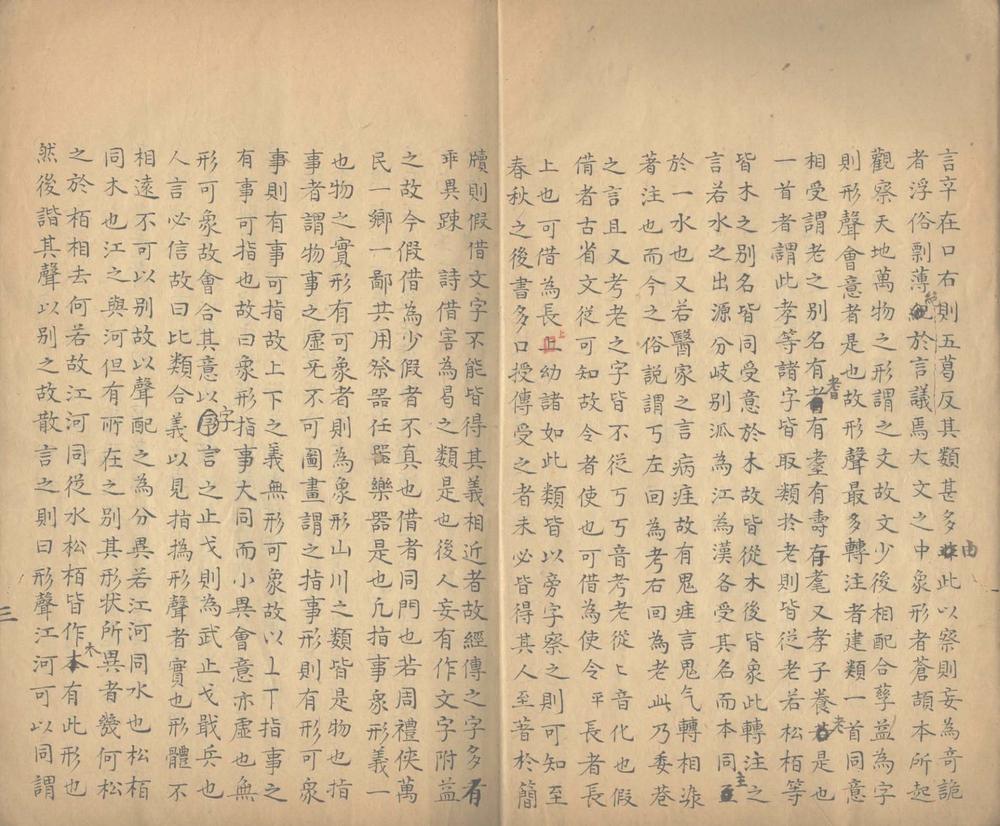 言卒在口右則五葛反其類甚多由此以察則妄為奇詭
者浮俗剽薄絶於言議焉大文之中象形者蒼頡本所起
觀察天地萬物之形謂之文故文少後相配合孳益為字
則形聲會意者是也故形聲最多轉注者建類一首同意
相受謂老之別名有耆有耋有壽有耄又孝子養老是也
一首者謂此孝等諸字皆取類於老則皆從老若松栢等
皆木之別名皆同受意於木故皆從木後皆象此轉注之
言若水之出源分歧別派為江為漢各受其名而本同主
於一水也又若醫家之言病疰故有鬼疰言鬼气轉相染
著注也而今之俗説謂丂左回為考右回為老此乃委巷
之言且又考老之字皆不從丂丂音考老從匕音化也假
借者古省文從可知故令者使也可借為使令平長者長
上也可借為長上幼諸如此類皆以旁字察之則可知至
春秋之後書多口授傳受之者未必皆得其人至著於簡
牘則假借文字不能皆得其義相近者故經傳之字多有
乖異踈 詩借害為曷之類是也後人妄有作文字附益
之故今假借為少假者不真也借者同門也若周禮俠萬
民一鄉一鄙共用祭器任器樂器是也凡指事象形義一
也物之實形有可象者則為象形山川之類皆是物也指
事者謂物事之虛无不可圖畫謂之指事形則有形可象
事則有事可指故上下之義無形可象故以丄丅指事之
有事可指也故曰象形指事大同而小異會意亦虛也無
形可象故會合其意以字言之止戈則為武止戈戢兵也
人言必信故曰比類合義以見指撝形聲者實也形體不
相遠不可以別故以聲配之為分異若江河同水也松栢
同木也江之與河但有所在之別其形狀所異者幾何松
之於栢相去何若故江河同從水松栢皆作木有此形也
然後諧其聲以別之故散言之則曰形聲江河可以同謂
三